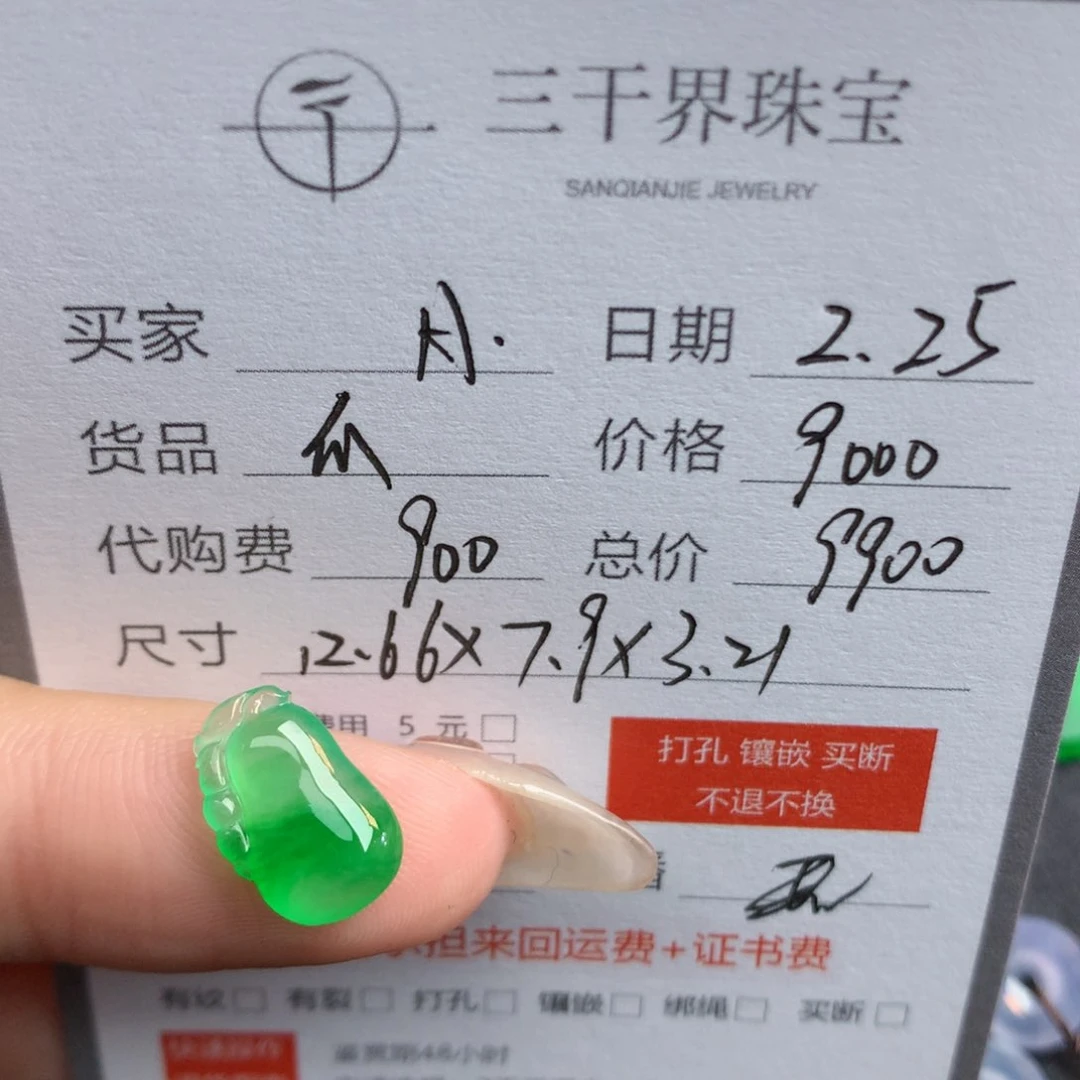 三千界珠宝
SANQIANJIE JEWELRY
买家 日期 2.25
货品 价格 9000
代购费 900 总价 9900
尺寸 12.66×7.9×3.21
费用 5 元
打孔 镶嵌 买断
不退不换
担来回运费+证书费
有纹 有裂 打孔 镶嵌 绑绳 买断